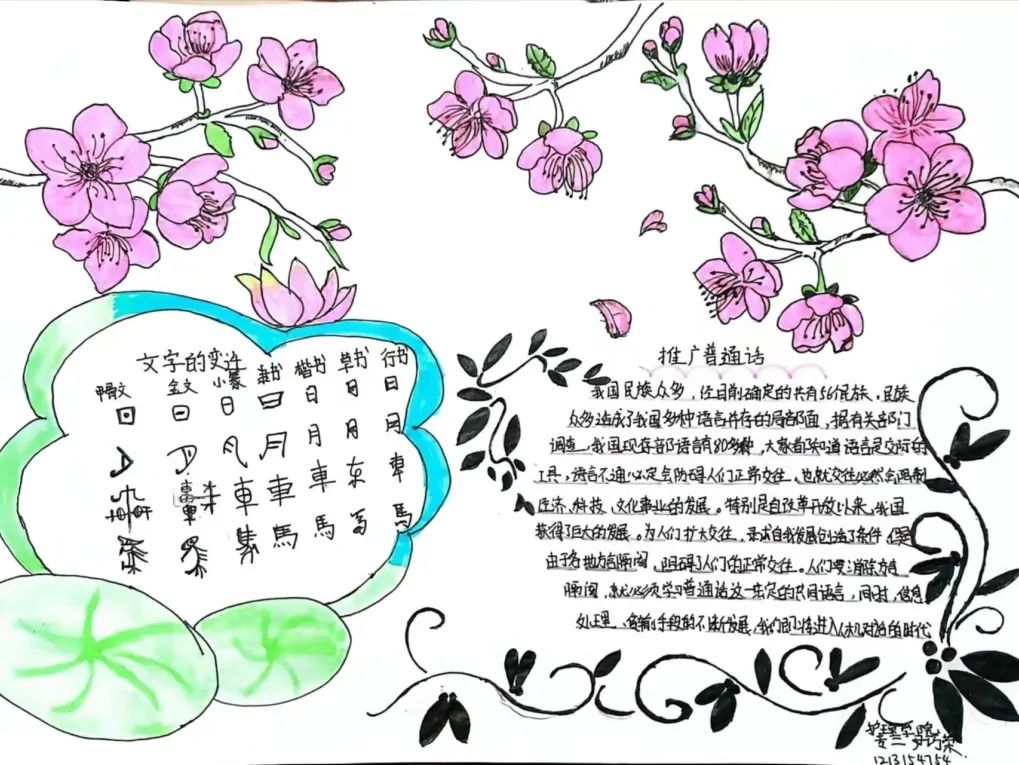 文字的变迁
甲骨文 金文 小篆 隶书 楷书 草书 行书
日 日 日 日 日 日 日
月 月 月 月 月 月 月
車 車 車 車 車 车 車
馬 馬 馬 馬 馬 馬 馬
推广普通话
我国民族众多,经目前确定的共有56个民族,民族
众多造成了我国多种语言并存的局部面,据有关部门
调查,我国现存部语言有80多种,大家都知道语言是交际的
工具,语言不通必定会防碍人们正常交往,也就交往必然会限制
经济、科技、文化事业的发展。特别是自改革开放以来,我国
获得了巨大的发展。为人们扩大交往,寻求自我发展创造了条件,但是
由于各地方言隔阂,阻碍了人们的正常交往。人们要消除方言
隔阂,就必须学习普通话这一法定的共同语言,同时,信息
处理、传输手段的不断发展,我们即将进入人机对话的时代
护理学院
1213154754